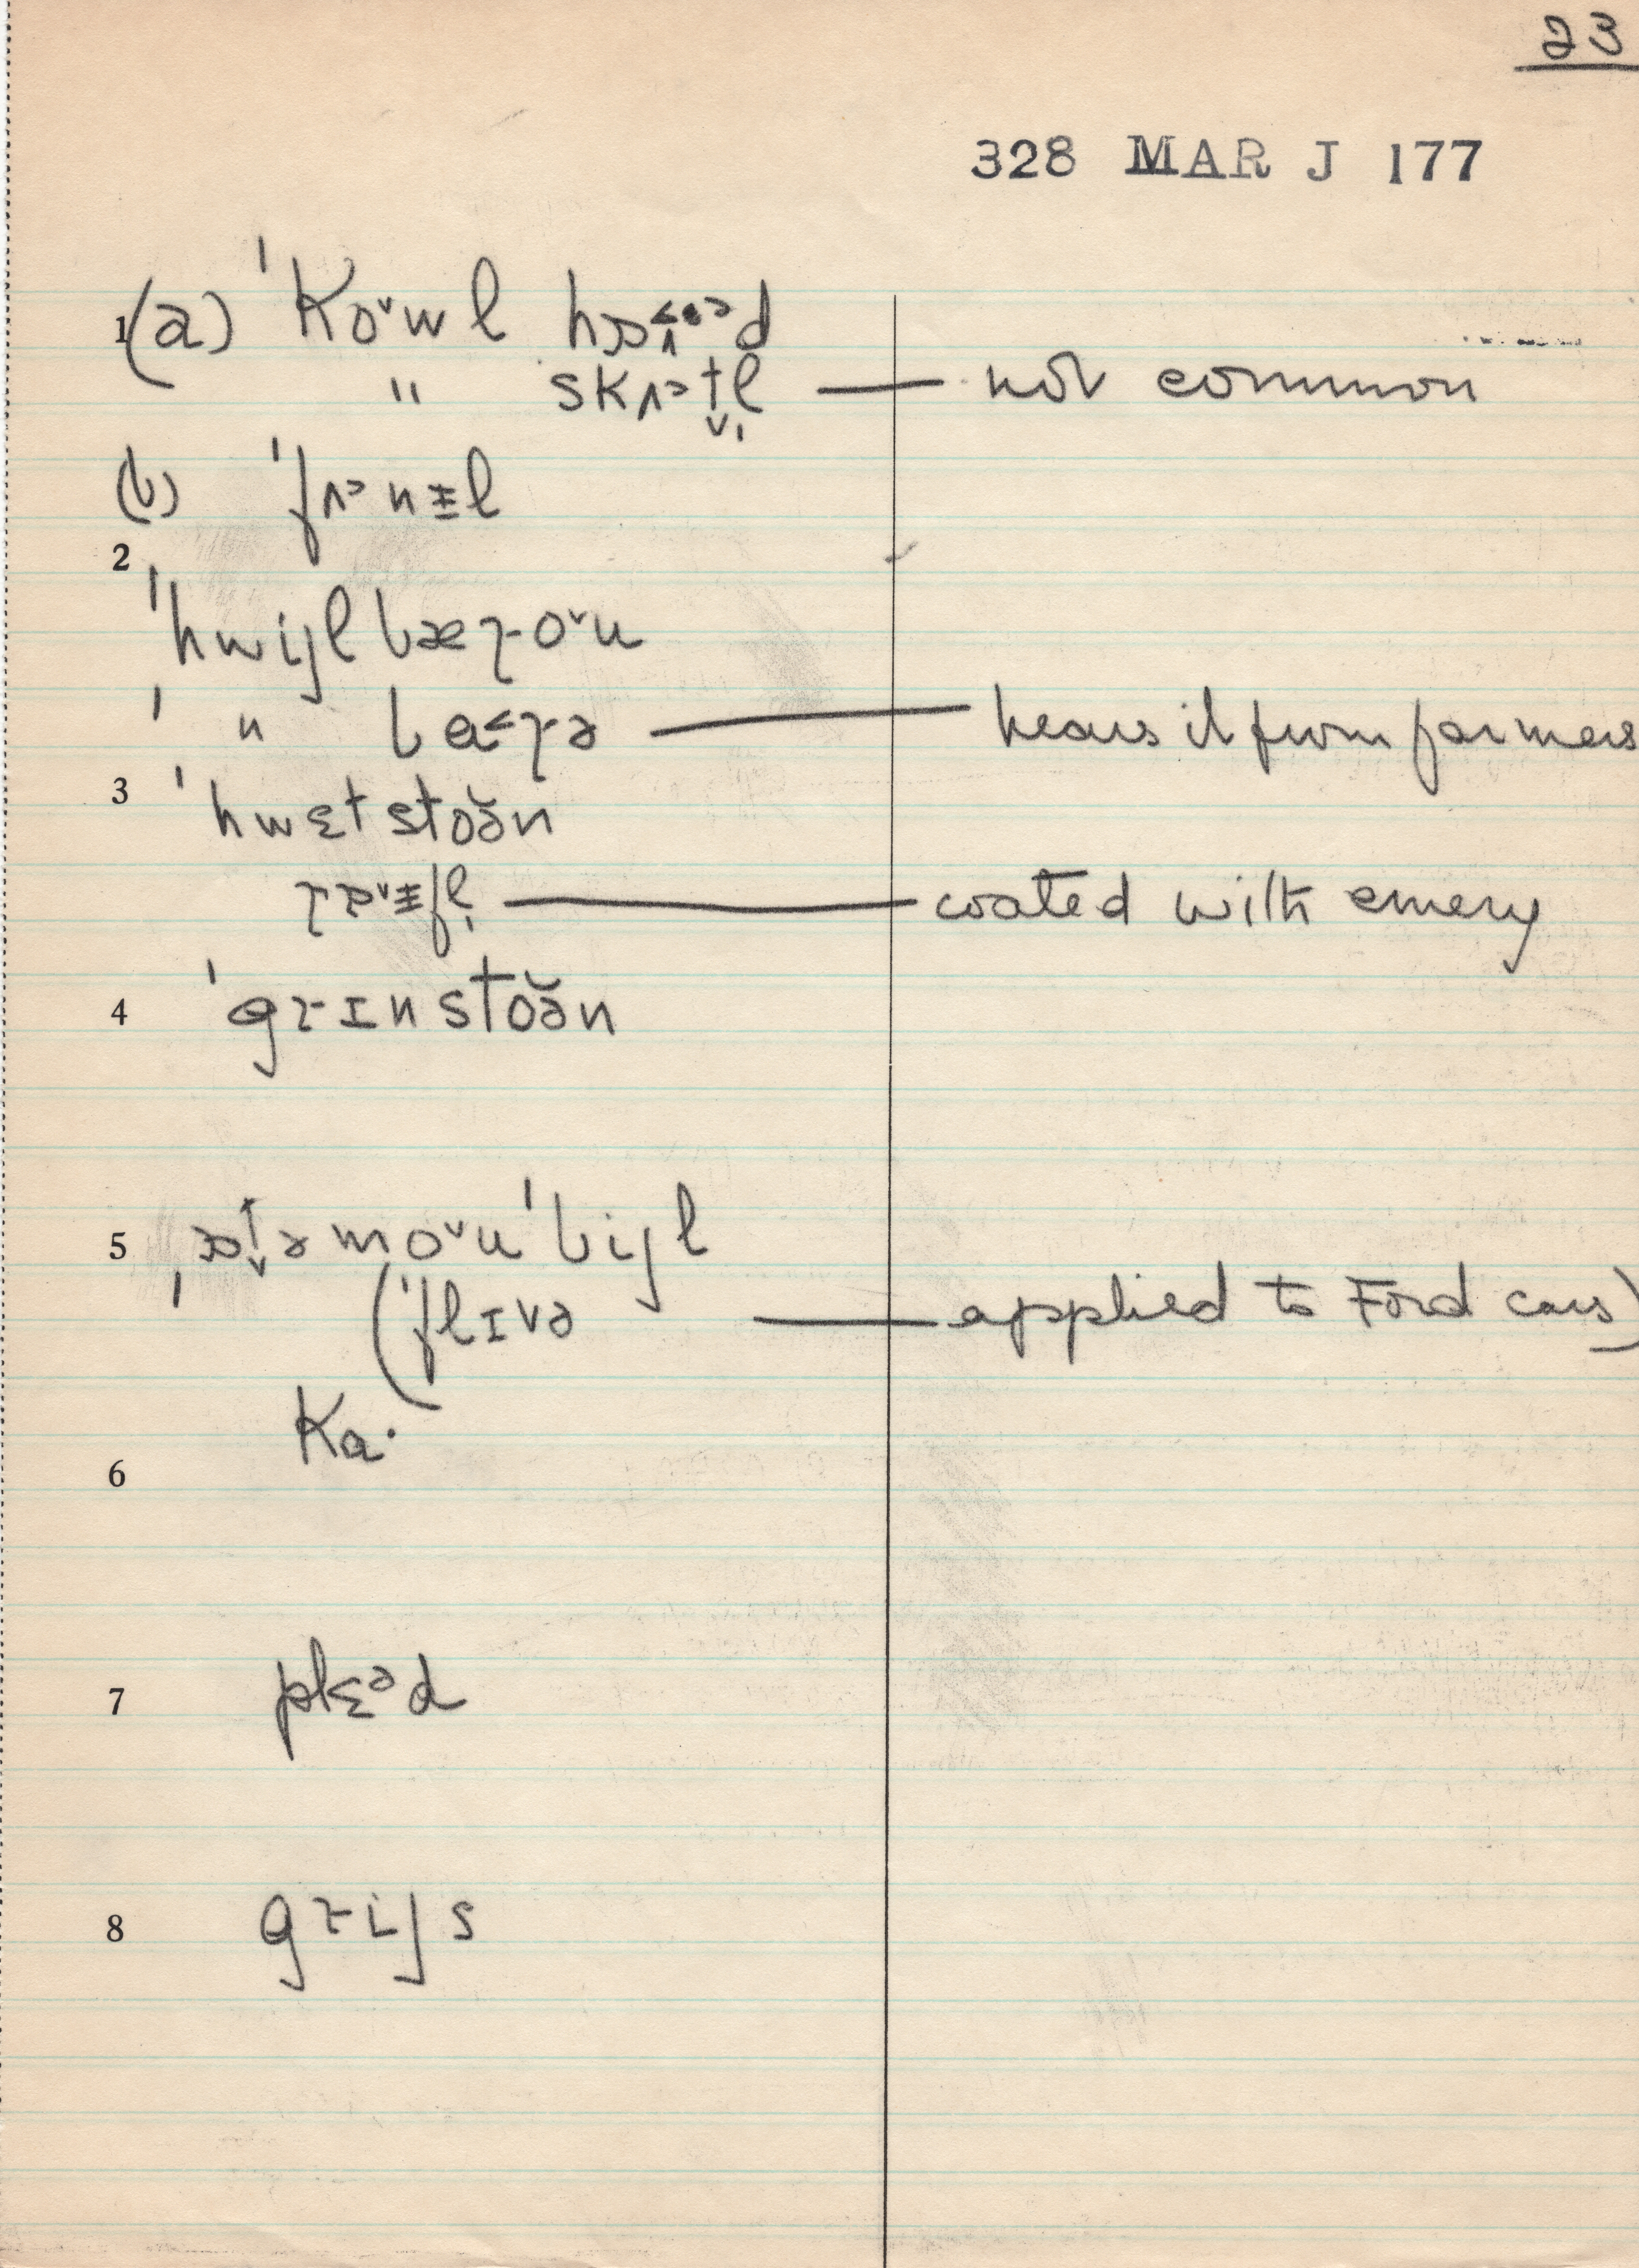 23
328 MAR J 177
1 (a) ˈkoˇwl hɒ˂ᵊd
" skʌᵊt̬l̩ — not common
(b) ˈfʌᵊnɪ̵l
2
ˈhwijl bæɾoˇu
ˈ " ba˂ɾə — hears it from farmers
3 ˈhwɛtstoə̆n
rɒˇɪ̵fl̩ — coated with emery
4 ˈgrɪnstoə̆n
5 ˌɒt̬əmoˇuˈbijl
(ˈflɪvə — applied to Ford cars)
ka·
6
7 plɛᵊd
8 grijs